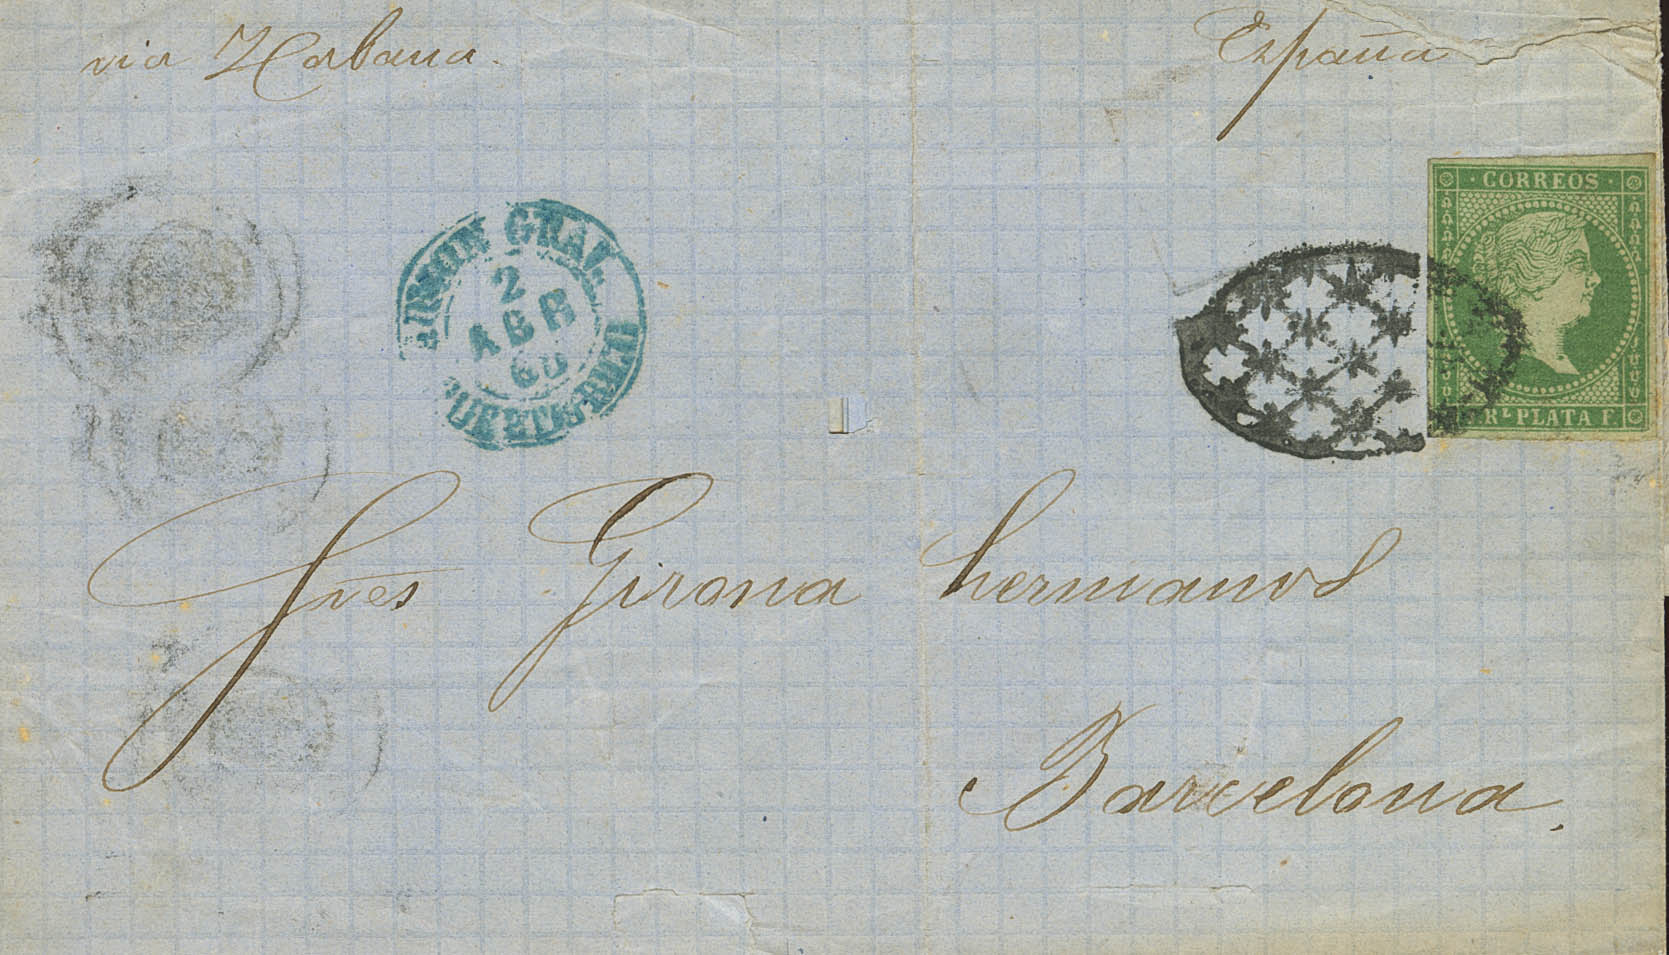 via Habana.
España
CORREOS
Rl. PLATA F.
GRAL
2
ABR
60
Sres Girona hermanos
Barcelona.